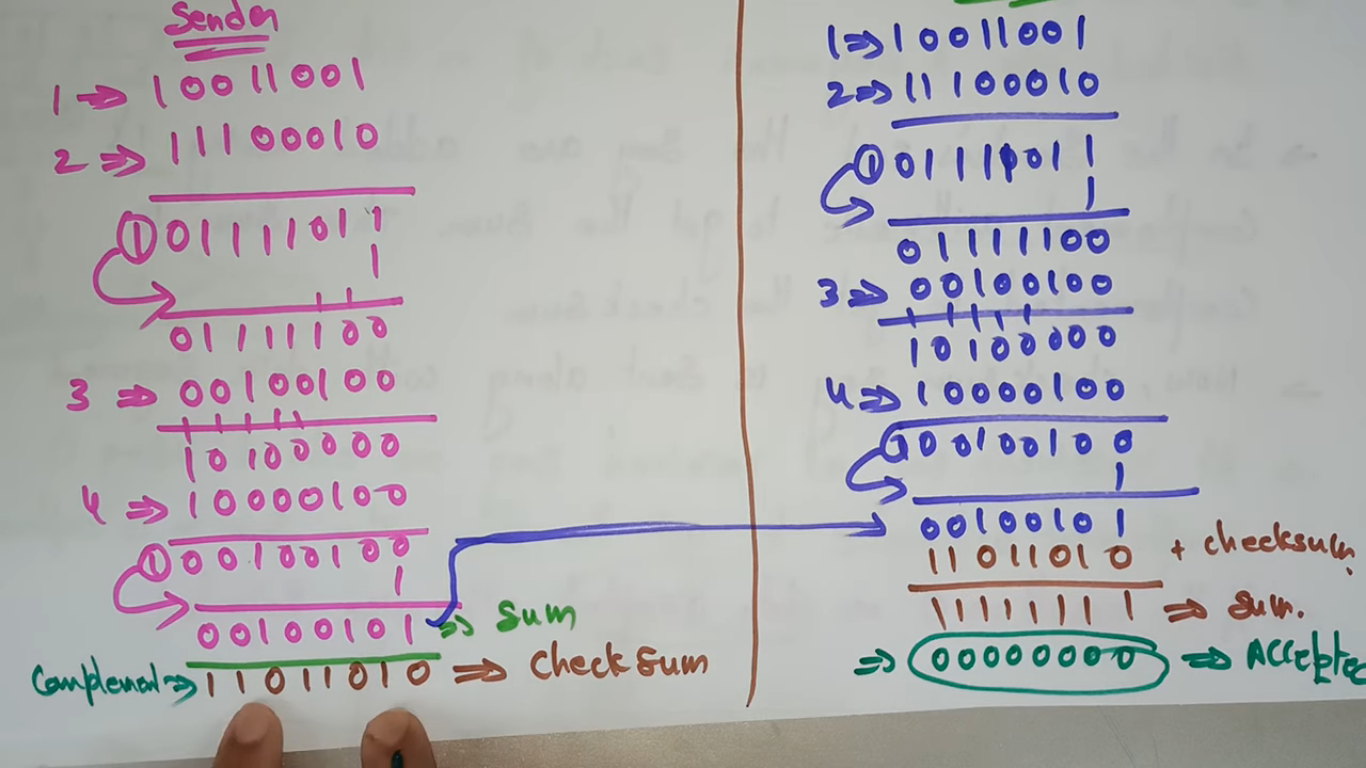 Sender
1 ⇒ 10011001
2 ⇒ 11100010
① 01111011
1
01111100
3 ⇒ 00100100
10100000
4 ⇒ 10000100
① 00100100
1
00100101 ⇒ Sum
Complement ⇒ 11011010 ⇒ CheckSum
1 ⇒ 10011001
2 ⇒ 11100010
① 01111011
1
01111100
3 ⇒ 00100100
10100000
4 ⇒ 10000100
① 00100100
1
00100101
11011010 + checksum.
11111111 ⇒ Sum.
⇒ 00000000 ⇒ Accepte